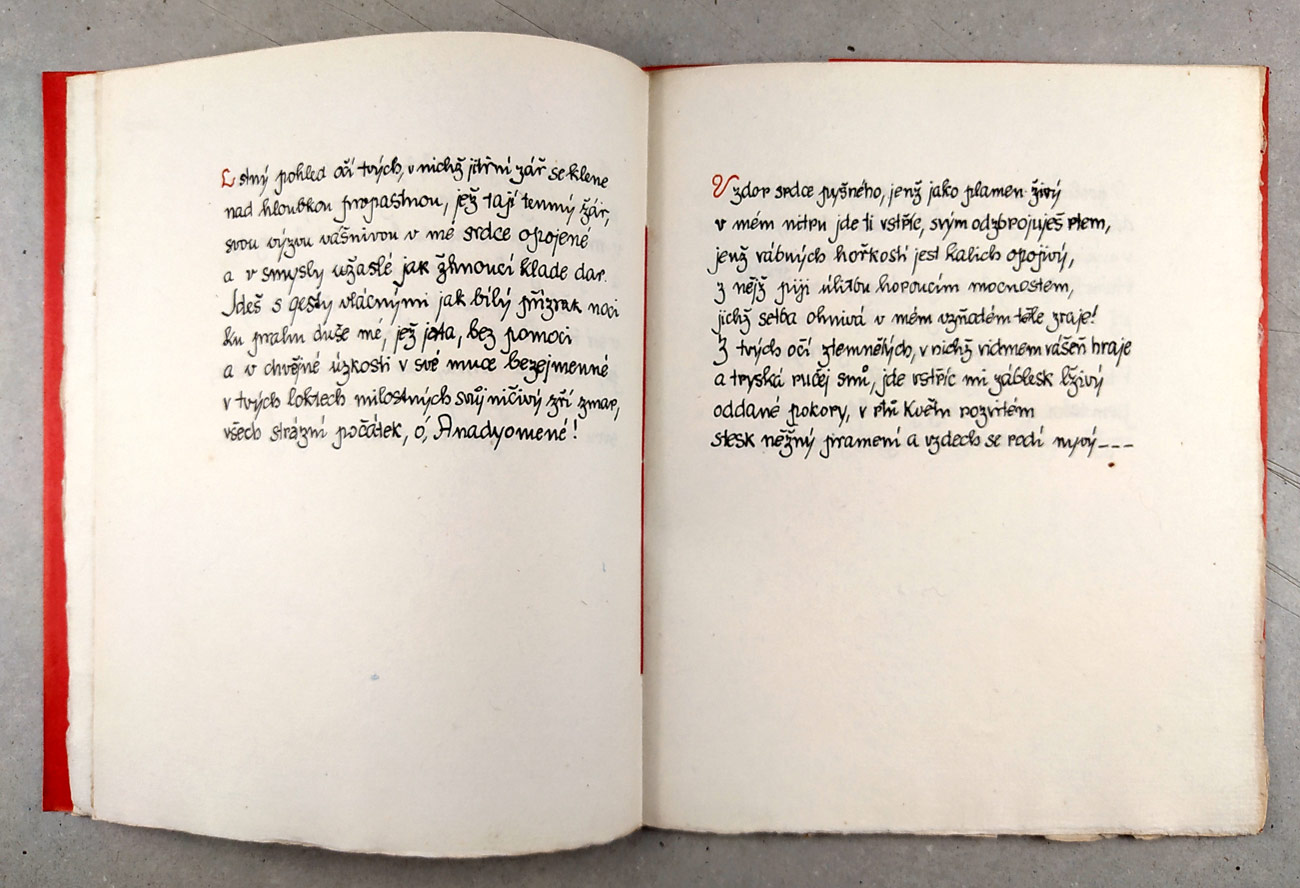 Lstný pohled očí tvých, v nichž jitřní zář se klene
nad hloubkou propastnou, jež tají temný žár,
svou výzvu vášnivou v mé srdce opojené
a v smysly užaslé jak žhnoucí klade dar.
Jdeš s gesty vláčnými jak bílý přízrak noci
ku prahu duše mé, jež jata, bez pomoci
a v chvějné úzkosti v své muce bezejmenné
v tvých loktech milostných svůj ničivý zří zmar,
všech strázní počátek, ó, Anadyomené!
Vzdor srdce pyšného, jenž jako plamen živý
v mém nitru jde ti vstříc, svým odzbrojuješ rtem,
jenž vábných hořkostí jest kalich opojivý,
z nějž piji úlitbu horoucím mocnostem,
jichž setba ohnivá v mém vzňadém těle zraje!
Z tvých očí ztemnělých, v nichž vidmem vášeň hraje
a tryská ručej snů, jde vstříc mi záblesk lživý
oddané pokory, v rtů květu rozvitém
stesk něžný pramení a vzdech se rodí ---